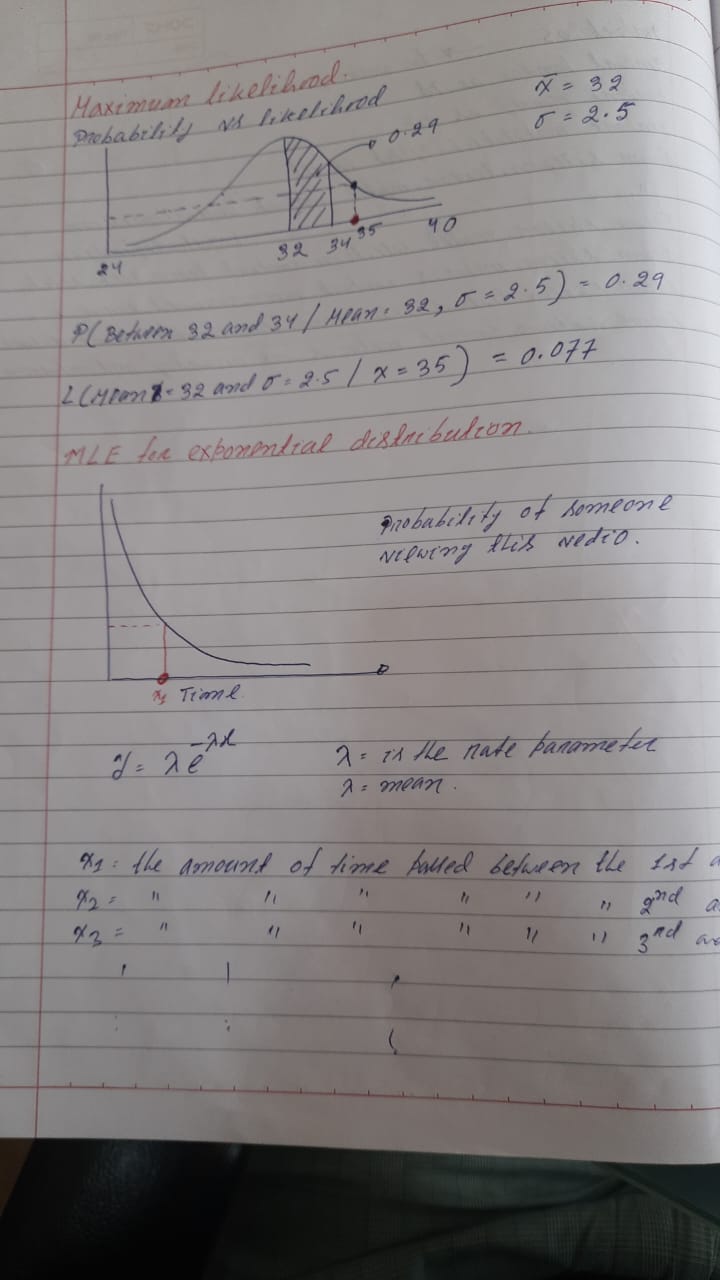 Maximum likelihood.
Probability vs likelihood
x̄ = 32
σ = 2.5
0.29
24 32 34 35 40
P(Between 32 and 34 / Mean = 32, σ = 2.5) = 0.29
L(Mean = 32 and σ = 2.5 / x = 35) = 0.077
MLE for exponential distribution.
Probability of someone
viewing this vedio.
x₁ Time
y = λe^-λx
λ = is the rate parameter
λ = mean.
x₁ = the amount of time passed between the 1st a
x₂ = " " " " " " 2nd a
x₃ = " " " " " " 3nd an